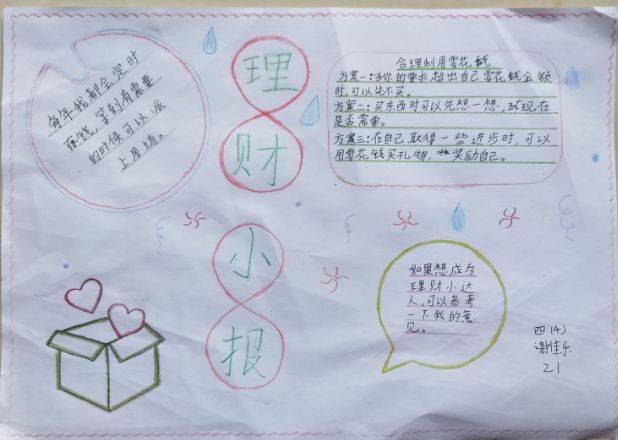 理财小报
每年我都会定时
存钱，等到有需要
的时候可以派
上用场。
合理利用零花钱
方案一：当你的要求超出自己零花钱金额
时，可以先不买。
方案二：买东西时可以先想一想，我现在
是否需要。
方案三：在自己取得一些进步时，可以
用零花钱买礼物，奖励自己。
如果想成为
理财小达
人，可以参考
一下我的意
见。
四(4)
谢佳乐
21